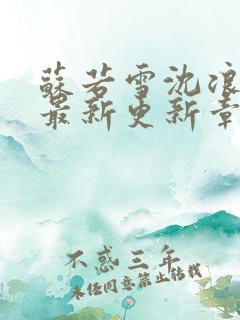 蘇若雪沈浪
最新更新章
不惑三年
未经同意禁止转载